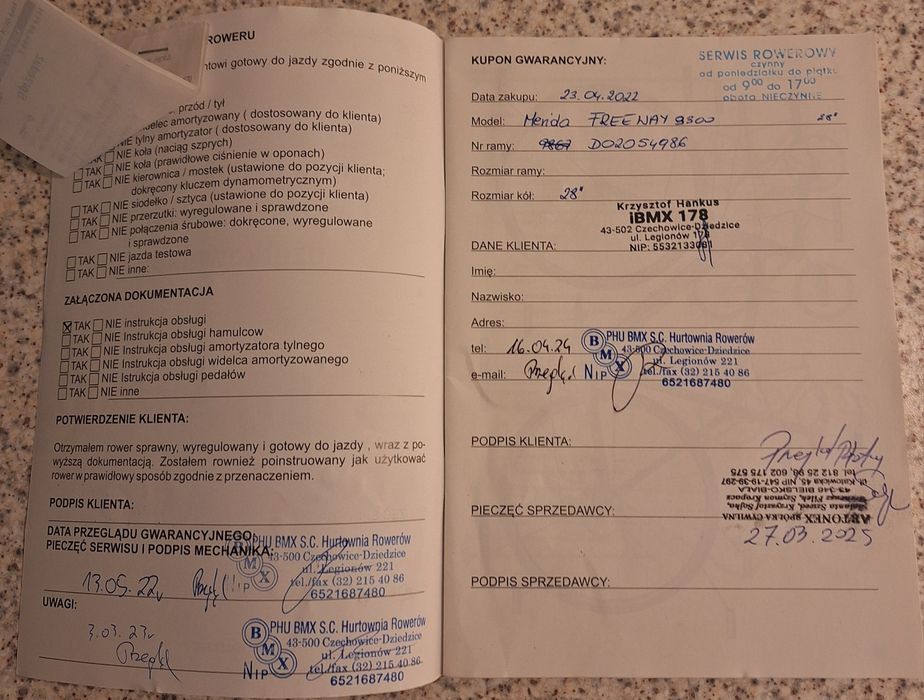 ROWERU
gotowy do jazdy zgodnie z poniższym
przód / tył
amortyzowany ( dostosowany do klienta)
tylny amortyzator ( dostosowany do klienta)
NIE koła (naciąg szprych)
TAK NIE koła (prawidłowe ciśnienie w oponach)
TAK NIE kierownica / mostek (ustawione do pozycji klienta;
dokręcony kluczem dynamometrycznym)
TAK NIE siodełko / sztyca (ustawione do pozycji klienta)
TAK NIE przerzutki: wyregulowane i sprawdzone
TAK NIE połączenia śrubowe: dokręcone, wyregulowane
i sprawdzone
TAK NIE jazda testowa
TAK NIE inne:
ZAŁĄCZONA DOKUMENTACJA
TAK NIE instrukcja obsługi
TAK NIE Instrukcja obsługi hamulcow
TAK NIE Instrukcja obsługi amortyzatora tylnego
TAK NIE Instrukcja obsługi widelca amortyzowanego
TAK NIE Istrukcja obsługi pedałów
TAK NIE inne
POTWIERDZENIE KLIENTA:
Otrzymałem rower sprawny, wyregulowany i gotowy do jazdy , wraz z po-
wyższą dokumentacją. Zostałem rownież poinstruowany jak użytkować
rower w prawidłowy sposób zgodnie z przeznaczeniem.
PODPIS KLIENTA:
DATA PRZEGLĄDU GWARANCYJNEGO
PIECZĘĆ SERWISU I PODPIS MECHANIKA:
PHU BMX S.C. Hurtownia Rowerów
43-500 Czechowice-Dziedzice
ul. Legionów 221
tel./fax (32) 215 40 86
NIP 6521687480
13.05.22r
UWAGI:
3.03.23r
Przegląd
BMX
PHU BMX S.C. Hurtownia Rowerów
43-500 Czechowice-Dziedzice
ul. Legionów 221
tel./fax (32) 215 40 86
NIP 6521687480
KUPON GWARANCYJNY:
SERWIS ROWEROWY
czynny
od poniedziałku do piątku
od 9 00 do 17 00
sobota NIECZYNNE
Data zakupu: 23.04.2022
Model: Merida FREEWAY 9300 28"
Nr ramy: DO2054986
Rozmiar ramy:
Rozmiar kół: 28"
Krzysztof Hankus
iBMX 178
43-502 Czechowice-Dziedzice
ul. Legionów 178
NIP: 5532133081
DANE KLIENTA:
Imię:
Nazwisko:
Adres:
tel: 16.04.24
e-mail: Przegląd
BMX
PHU BMX S.C. Hurtownia Rowerów
43-500 Czechowice-Dziedzice
ul. Legionów 221
tel./fax (32) 215 40 86
NIP 6521687480
PODPIS KLIENTA:
Przegląd
PIECZĘĆ SPRZEDAWCY:
ARTONEX SPÓŁKA CYWILNA
43-346 BIELSKO-BIAŁA
ul. Katowicka 45, NIP 547-19-39-297
tel. 812 25 98, 602 175 575
27.03.2025
PODPIS SPRZEDAWCY: